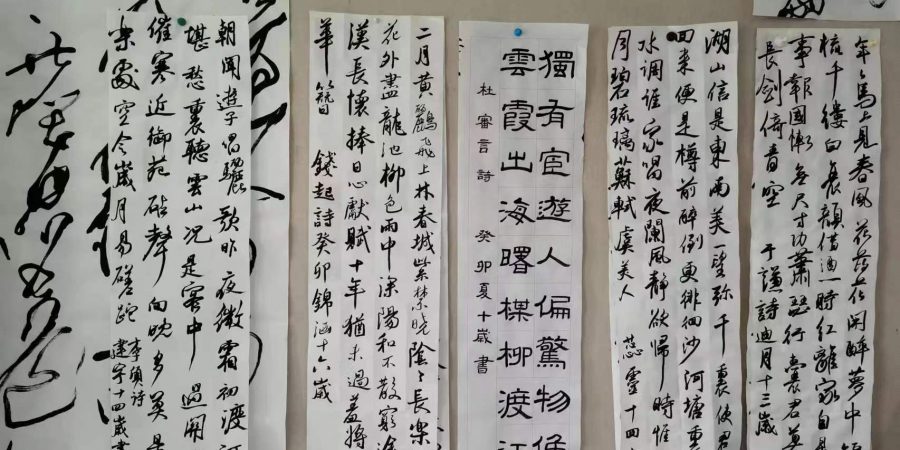 年〻馬上見春風花落花開醉夢中短
梳千縷白衰顏借酒一時紅離家自是
事報國慚無尺寸功蕭瑟行囊君莫
長劍倚青空 于謙詩迪月十三歲
湖山信是東南美一望弥千裏使君
回来便是樽前醉倒更徘徊沙河塘
水調誰家唱夜闌風靜欲歸時惟
月碧琉璃蘇軾虞美人 蕊靈十四
獨有宦遊人偏驚物候
雲霞出海曙楳柳渡江
杜審言詩 癸卯夏十歲書
二月黃鸝飛上林春城紫禁曉陰〻長樂
花外盡龍池柳色雨中深陽和不散窮途
漢長懷捧日心獻賦十年猶未遇羞將
華簪 錢起詩癸卯錦涵十六歲
朝聞遊子唱驪歌昨夜微霜初渡河
堪愁裏聽雲山况是客中過開
催寒近御苑砧聲向晚多莫是
樂處空令歲月易磋跎
李頎詩
建宇十四歲書